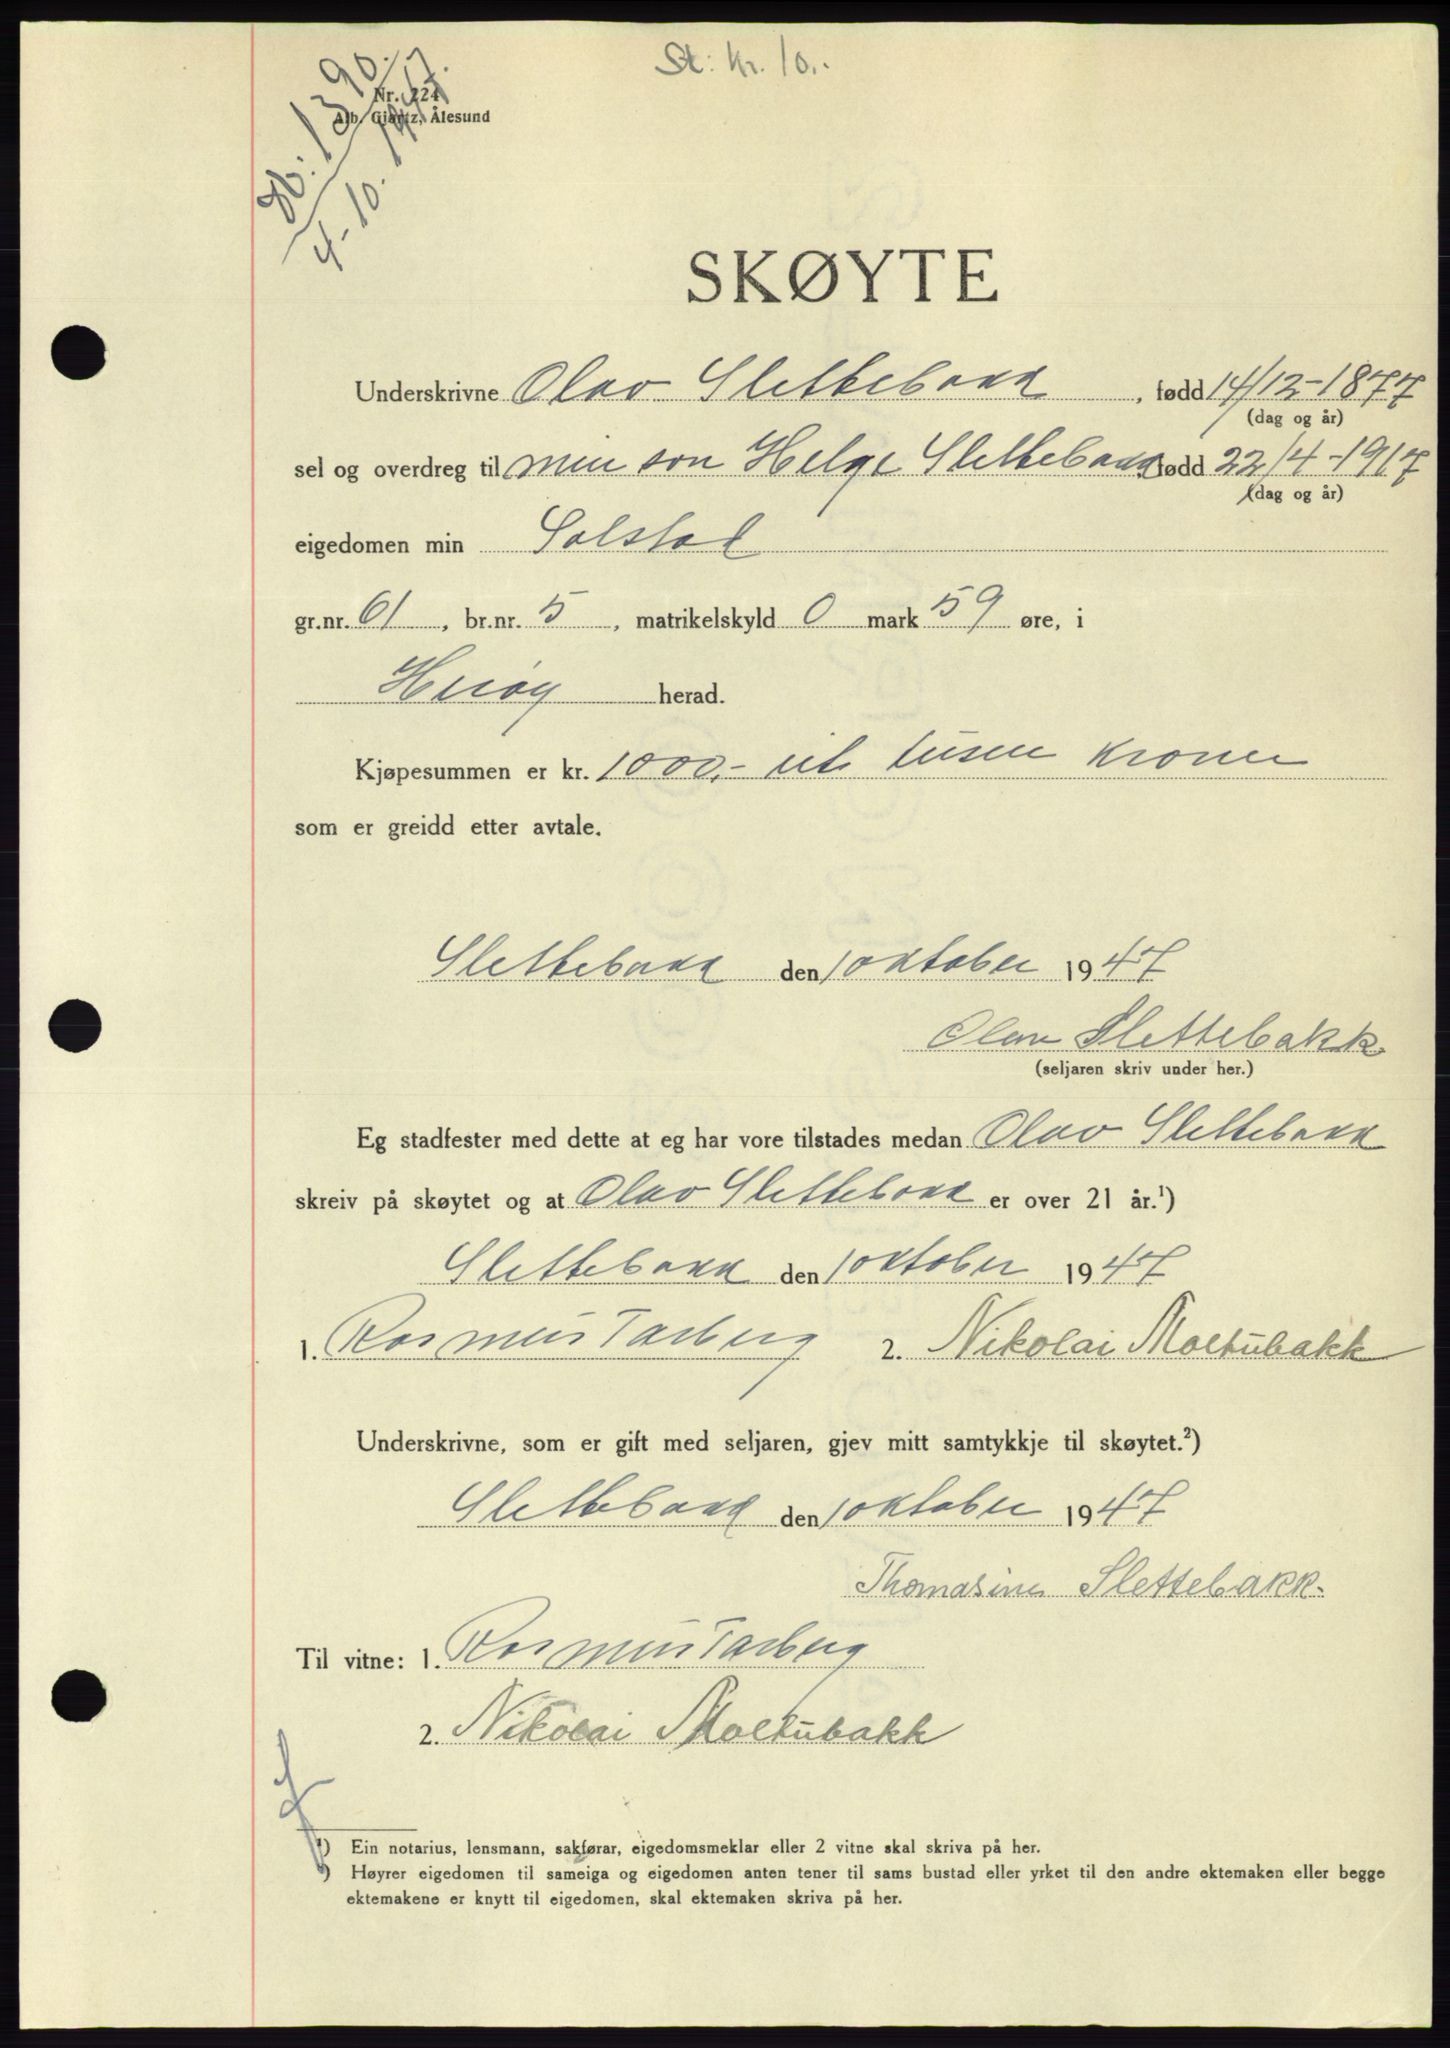 St: Kr. 10,-
Nr. 224
Alb. Gjørtz, Ålesund
Db: 1390.
4-10.1947.
SKØYTE
Underskrivne Olav Slettebakk, fødd 14/12-1877
(dag og år)
sel og overdreg til min son Helge Slettebakk fødd 22/4-1917
(dag og år)
eigedomen min Solstad
gr.nr. 61, br.nr. 5, matrikelskyld 0 mark 59 øre, i
Herøy herad.
Kjøpesummen er kr. 1000,- eit tusen kroner
som er greidd etter avtale.
Slettebakk den 1 oktober 1947
Olav Slettebakk.
(seljaren skriv under her.)
Eg stadfester med dette at eg har vore tilstades medan Olav Slettebakk
skreiv på skøytet og at Olav Slettebakk er over 21 år.¹)
Slettebakk den 1 oktober 1947
1. Rasmus Tarberg 2. Nikolai Moltubakk
Underskrivne, som er gift med seljaren, gjev mitt samtykkje til skøytet.²)
Slettebakk den 1 oktober 1947
Thomasine Slettebakk.
Til vitne: 1. Rasmus Tarberg
2. Nikolai Moltubakk
¹) Ein notarius, lensmann, sakførar, eigedomsmeklar eller 2 vitne skal skriva på her.
²) Høyrer eigedomen til sameiga og eigedomen anten tener til sams bustad eller yrket til den andre ektemaken eller begge
ektemakene er knytt til eigedomen, skal ektemaken skriva på her.